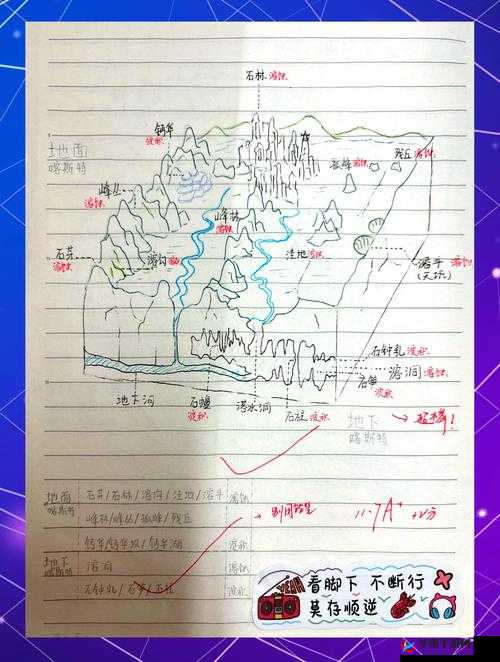 石林 溶蚀
钙华
沉积
地面
喀斯特
孤峰 溶蚀
残丘 溶蚀
峰丛
溶蚀
峰林
溶蚀
石芽
溶蚀
溶沟 溶蚀
洼地 溶蚀
溶斗 溶蚀
(天坑)
石钟乳 沉积
溶洞 溶蚀
石笋
沉积
地下河
石幔
沉积
落水洞
石柱 沉积
地下
喀斯特
地面
石芽/石林/溶沟/洼地/溶斗
溶蚀
峰林/峰丛/孤峰/残丘
11.7 A+ +2分
钙华/钙华坝/钙华湖
沉积
地下
喀斯特
溶洞
溶蚀
石钟乳/石笋/石柱
沉积
YEAH
看脚下 不断行
莫存顺逆